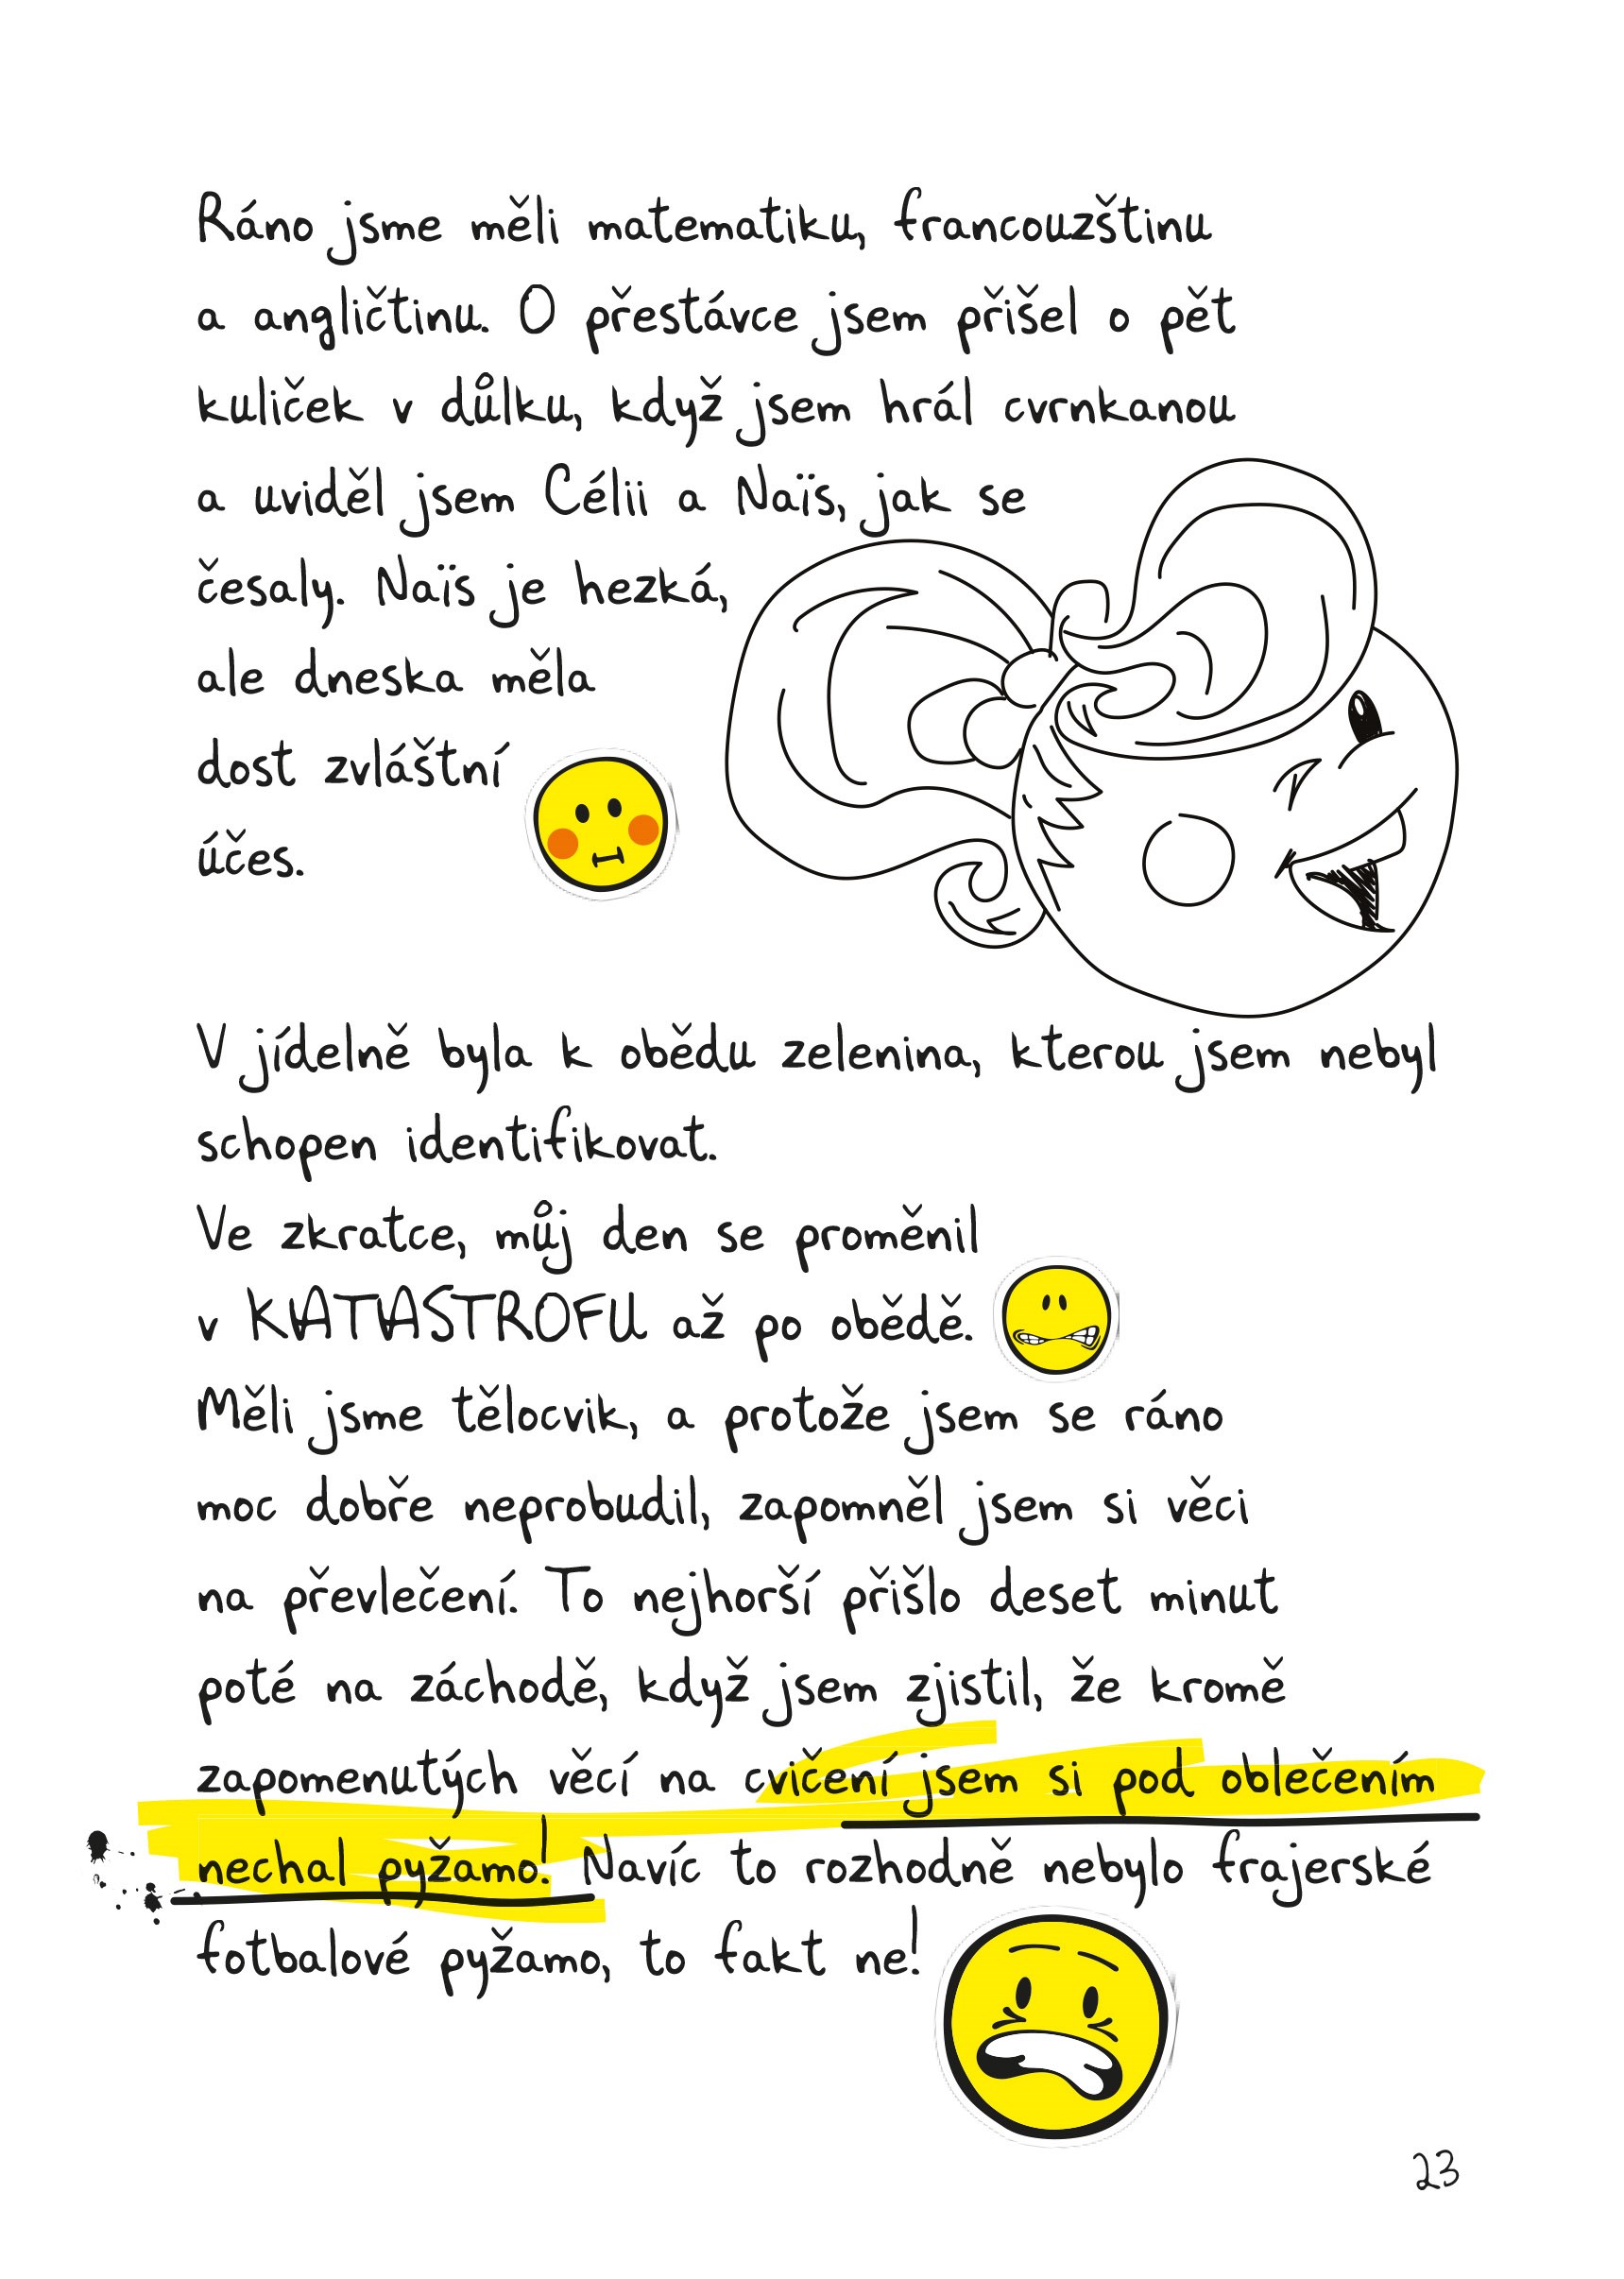 Ráno jsme měli matematiku, francouzštinu
a angličtinu. O přestávce jsem přišel o pět
kuliček v důlku, když jsem hrál cvrnkanou
a uviděl jsem Célii a Naïs, jak se
česaly. Naïs je hezká,
ale dneska měla
dost zvláštní
účes.
V jídelně byla k obědu zelenina, kterou jsem nebyl
schopen identifikovat.
Ve zkratce, můj den se proměnil
v KATASTROFU až po obědě.
Měli jsme tělocvik, a protože jsem se ráno
moc dobře neprobudil, zapomněl jsem si věci
na převlečení. To nejhorší přišlo deset minut
poté na záchodě, když jsem zjistil, že kromě
zapomenutých věcí na cvičení jsem si pod oblečením
nechal pyžamo! Navíc to rozhodně nebylo frajerské
fotbalové pyžamo, to fakt ne!
23